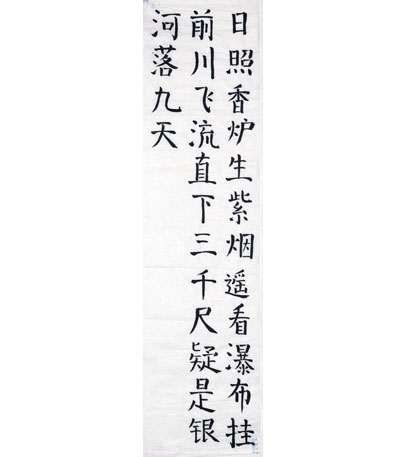 日照香炉生紫烟遥看瀑布挂
前川飞流直下三千尺疑是银
河落九天